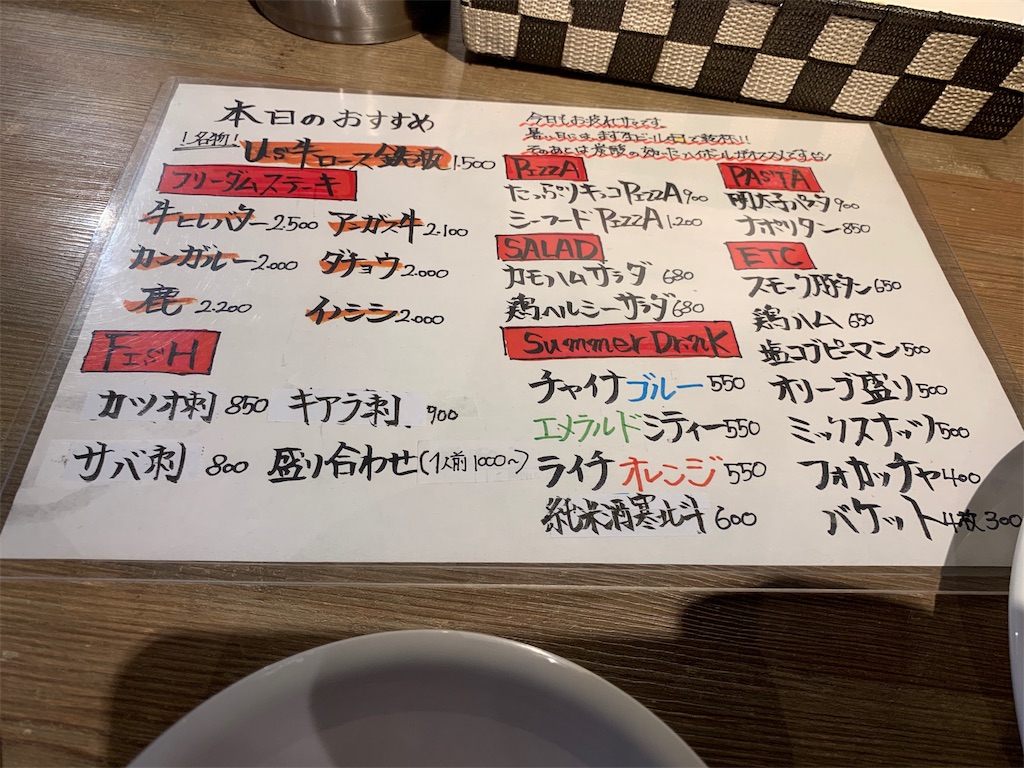 本日のおすすめ
！名物！
US牛ロース鉄板 1.500
フリーダムステーキ
牛ヒレバター 2.500 アンガス牛 2.100
カンガルー 2.000 ダチョウ 2.000
鹿 2.200 イノシシ 2.000
FISH
カツオ刺 850 キアラ刺 900
サバ刺 800 盛り合わせ(1人前1000〜)
今日もお疲れサマです
暑い日にはまず生ビール
そのあとは炭酸の効いたハイボールがオススメですね！
PIZZA
たっぷりキノコPIZZA 900
シーフードPIZZA 1.200
SALAD
カモハムサラダ 680
鶏ヘルシーサラダ 680
Summer Drink
チャイナブルー 550
エメラルドシティー 550
ライチオレンジ 550
純米酒寒北斗 600
PASTA
明太子パスタ 900
ナポリタン 850
ETC
スモーク豚タン 650
鶏ハム 650
塩コブピーマン 500
オリーブ盛り 500
ミックスナッツ 500
フォカッチャ 400
バケット4枚 300